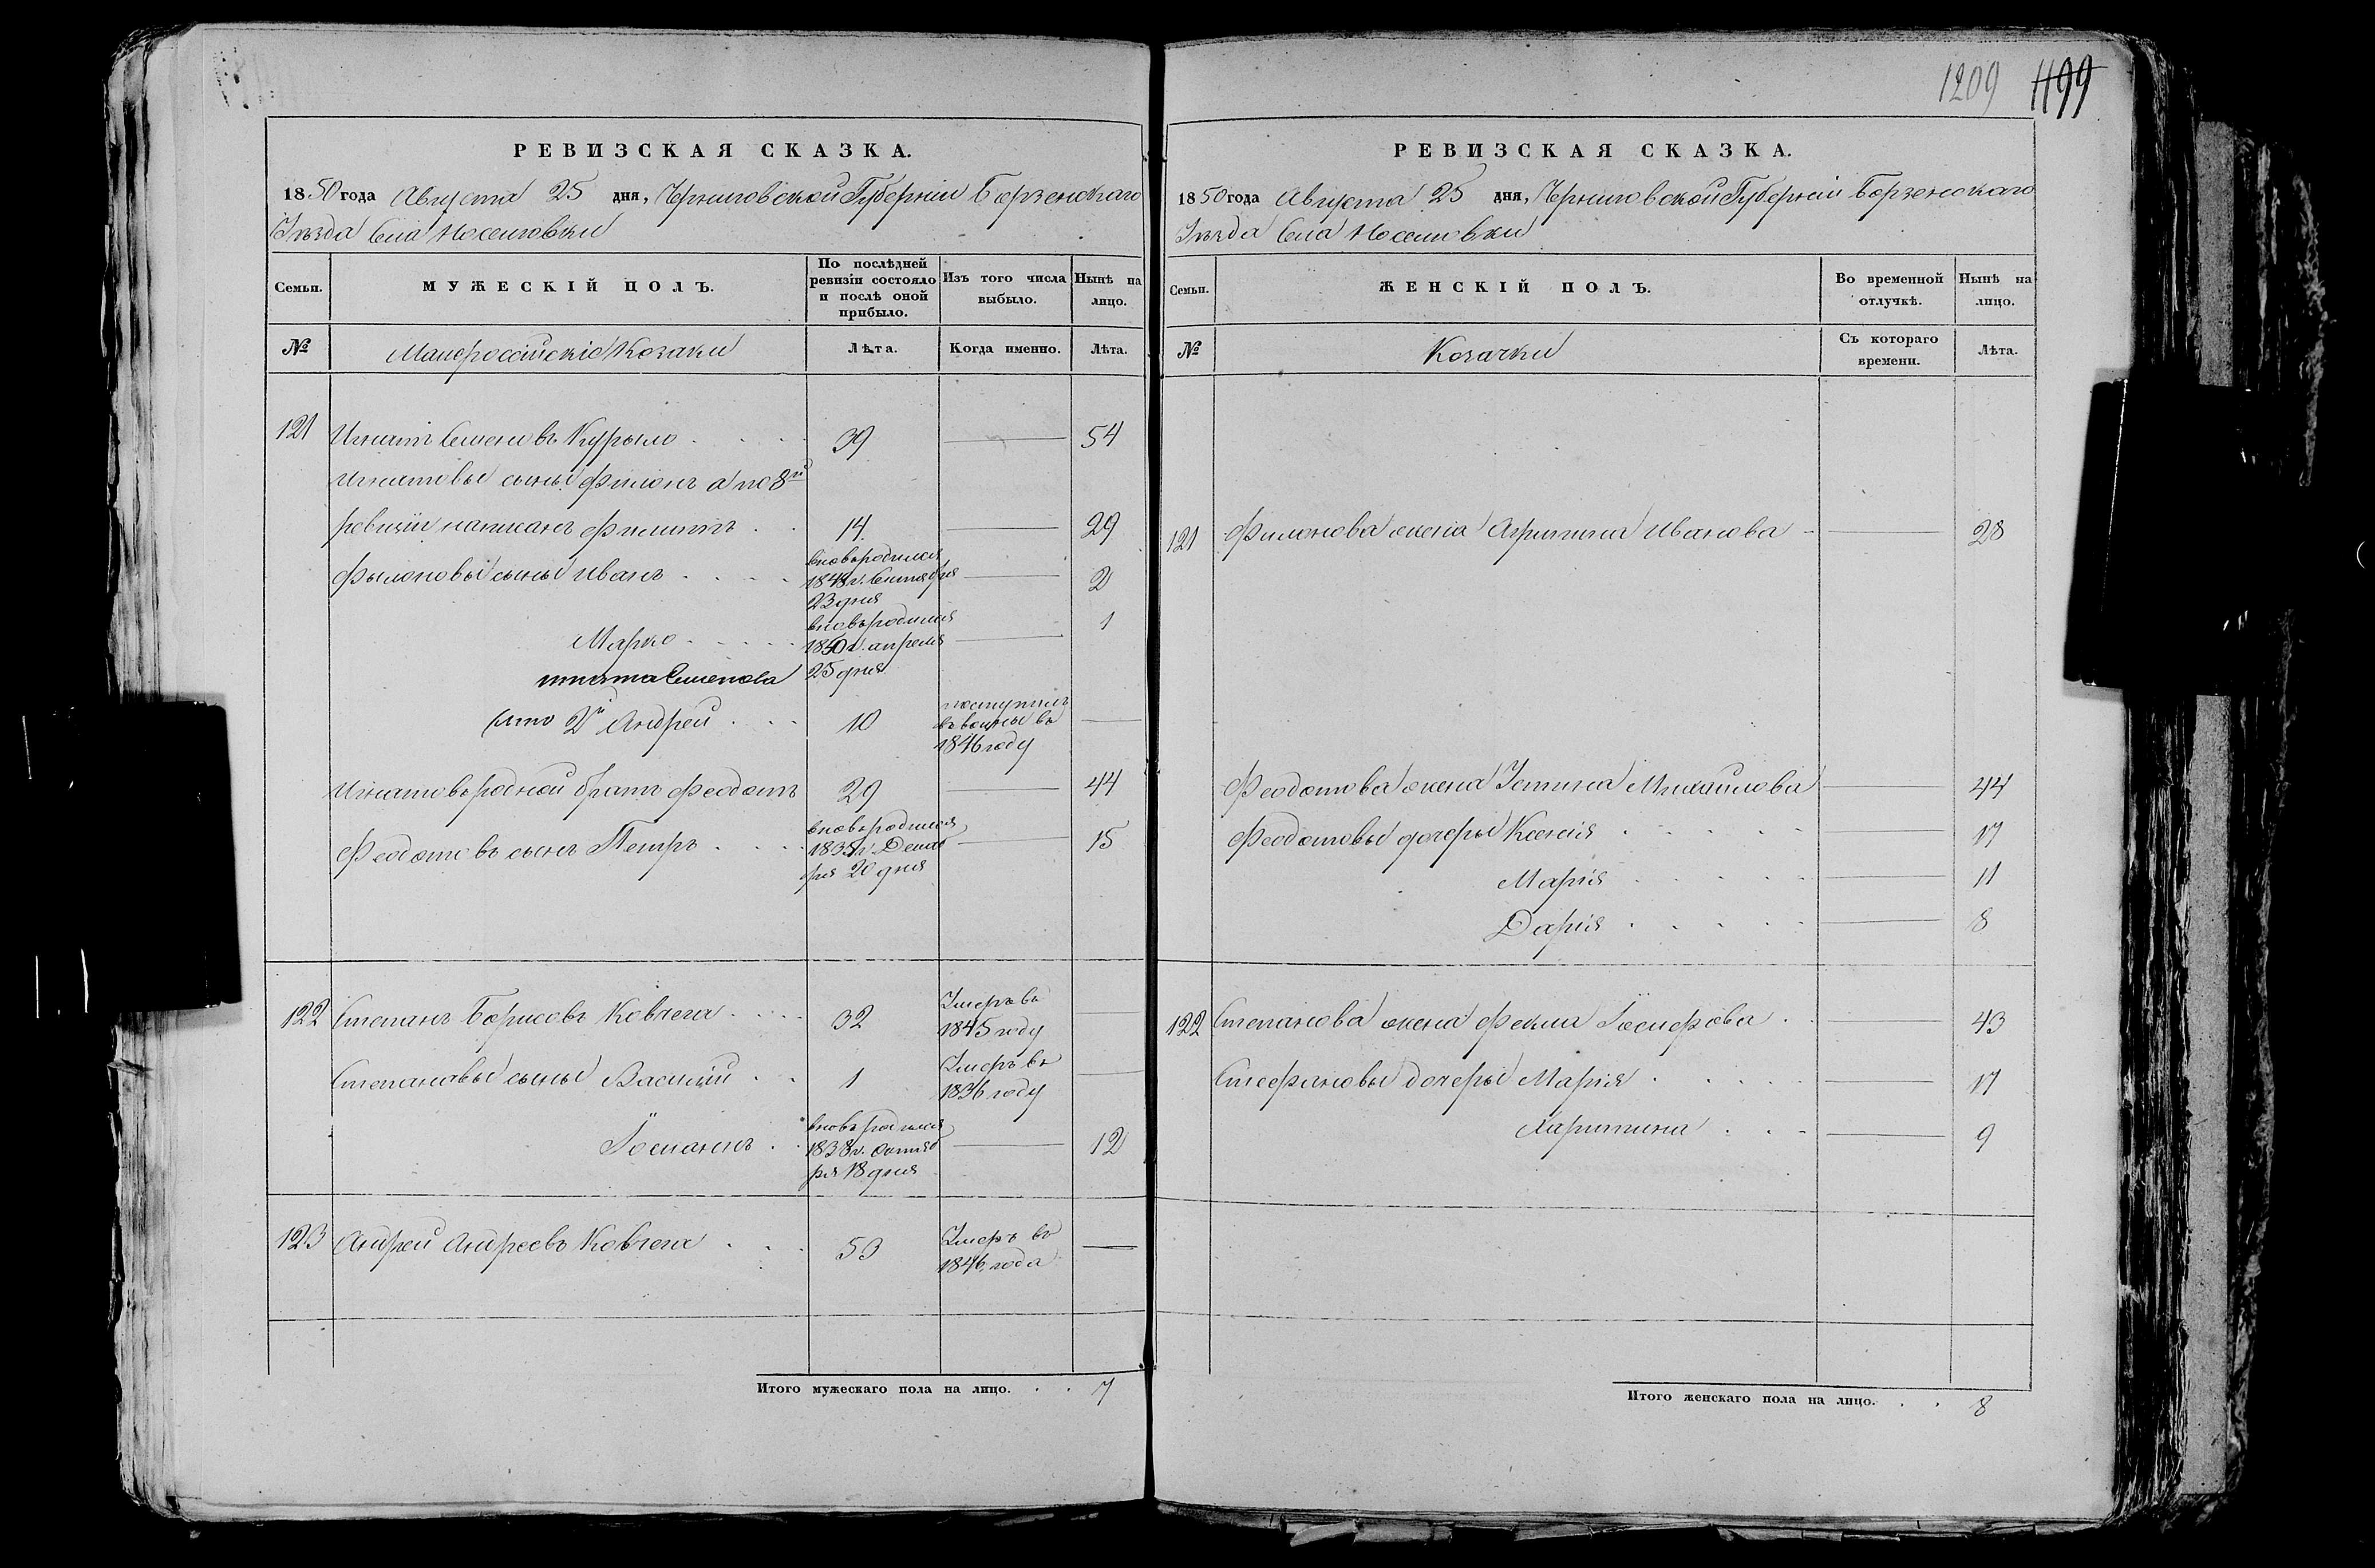 1209 1199
РЕВИЗСКАЯ СКАЗКА.
1850 года Августа 25 дня, Черниговской Губерніи Борзенскаго
Уѣзда Села Носеловки
Семьи.
МУЖЕСКІЙ ПОЛЪ.
По послѣдней ревизіи состояло и послѣ оной прибыло.
Изъ того числа выбыло.
Нынѣ на лицо.
№
Малороссійскіе Козаки
Лѣта.
Когда именно.
Лѣта.
121 Игнатъ Семеновъ Курыло 39 54
Игнатовы сыны Филонъ а по 8й
ревизіи написанъ Филиппъ 14 29
Фылоновы сыны Иванъ вновьродился 1848 г. Сентября 23 дня 2
Марко вновьродился 1850 г. апреля 25 дня 1
Игната Семенова
сынъ 2й Андрей 10 поступилъ въ 1846 году
Игнатовъ родной братъ Феодотъ 29 44
Феодотовъ сынъ Петръ вновьродился 1835 г. Декабря 20 дня 15
122 Степанъ Борисовъ Ковчега 32 Умеръ въ 1845 году
Степановы сыны Василій 1 Умеръ въ 1836 году
вновьродился 1838 г. октября 18 дня 12
123 Андрей Андреевъ Ковчега 53 Умеръ въ 1846 года
Итого мужескаго пола на лицо. 7
РЕВИЗСКАЯ СКАЗКА.
1850 года Августа 25 дня, Черниговской Губерніи Борзенскаго
Уѣзда Села Носеловки
Семьи.
ЖЕНСКІЙ ПОЛЪ.
Во временной отлучкѣ.
Нынѣ на лицо.
№
Козачки
Съ котораго времени.
Лѣта.
121 Филонова жена Агрипина Иванова 28
Феодотова жена Устина Михайлова 44
Феодотовы дочеры Ксенія 17
Марія 11
Дарія 8
122 Степанова жена Фекла Іосифова 43
Стефановы дочеры Марія 17
Харитина 9
Итого женскаго пола на лицо. 8